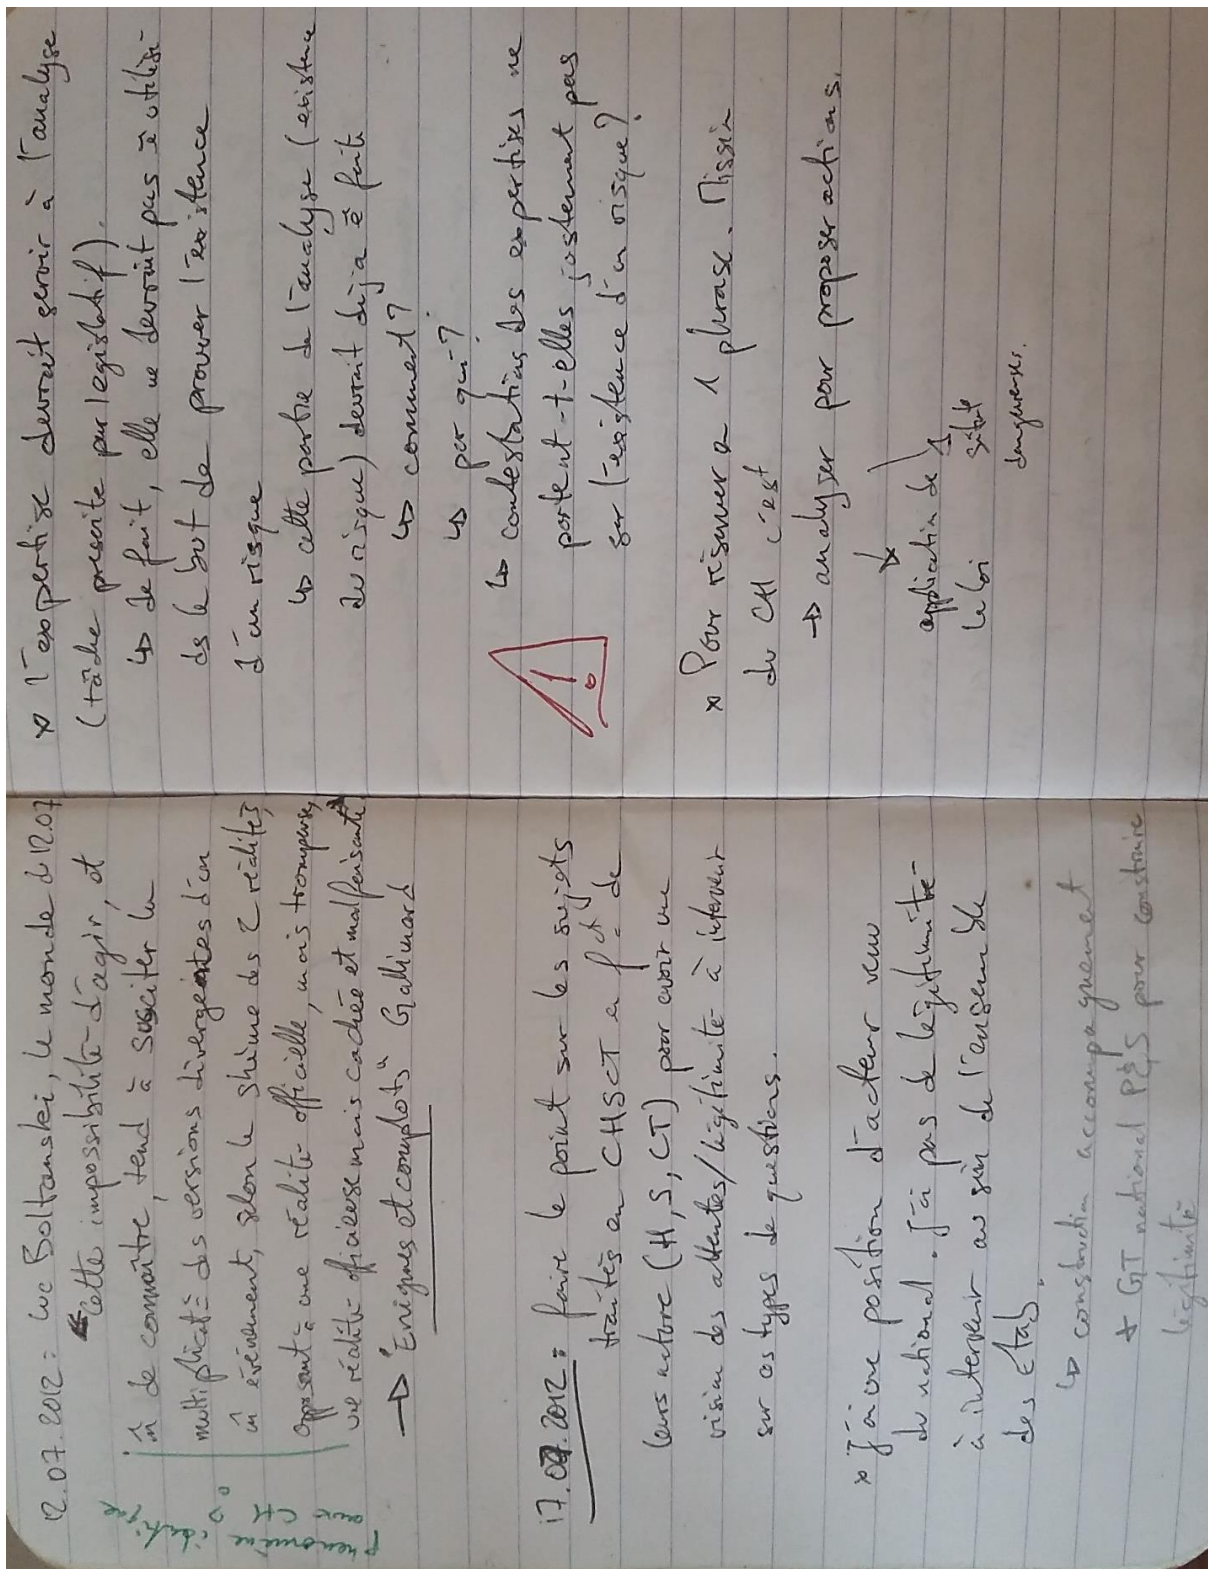 12.07.2012 : Luc Boltanski, le monde du 12.07
"Cette impossibilité d'agir, et
in de connaître, tend à susciter la
multiplicat° des versions divergentes d'un
m̂ événement, selon le shème des 2 réalités,
opposant à une réalité officielle, mais trompeuse,
une réalité officieuse mais cachée et malfaisante"
→ "Enigmes et complots" Gallimard
phénomène
identique
aux CH
17.07.2012 : faire le point sur les sujets
traités en CHSCT en fct° de
leurs nature (H, S, CT) pour avoir une
vision des attentes/légitimité à intervenir
sur ces types de questions.
x J'ai une position d'acteur venu
du national. J'ai pas de légitimité
à intervenir au sein de l'ensemble
des Etab.
↳ construction accompagnement
+ GT national P&S pour construire
légitimité
x l'expertise devrait servir à l'analyse
(tâche prescrite par législatif).
↳ de fait, elle ne devrait pas ê utilisé
ds le but de prouver l'existence
d'un risque
↳ cette partie de l'analyse (existence
du risque) devrait déjà ê faite
↳ comment ?
↳ par qui ?
↳ contestations des expertises ne
portent-t-elles justement pas
sur l'existence d'un risque ?
!
x Pour résumer en 1 phrase. Mission
du CH c'est
→ analyser pour proposer actions.
application de
la loi
1
situat°
dangereuses.